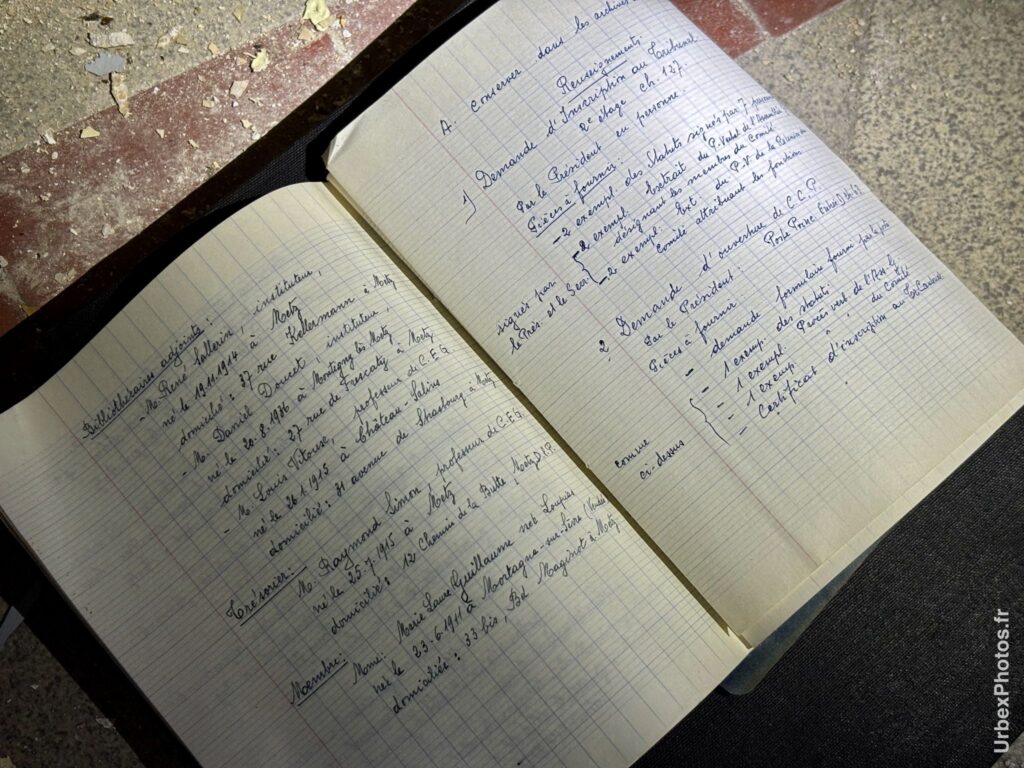 Bibliothécaires adjoints :
- M. René Sallerin, instituteur,
né le 19.11.1914 à Metz
domicilié : 37 rue Kellermann à Metz
- M. Daniel Doucet, instituteur,
né le 20.8.1936 à Montigny lès Metz
domicilié : 27 rue de Frescaty à Metz
- M. Louis Vitouse, professeur de C.E.G
né le 26.1.1915 à Château-Salins
domicilié : 31 avenue de Strasbourg à Metz
Trésorier : M. Raymond Simon, professeur de C.E.G.
né le 25.7.1915 à Metz
domicilié : 12 Chemin de la Butte, Metz D.I.P.
Membre : Mme. Marie Laure Guillaume née Loupias
née le 23-6-1911 à Mortagne-sur-Sèvre (Vendée
domiciliée : 33 bis, Bd Maginot à Metz
A. Conserver dans les archives
Renseignements.
1) Demande d'Inscription au Tribunal
2e étage ch. 127.
Par le Président en personne.
Pièces à fournir :
- 2 exempl. des Statuts signés par 7
- 2 exempl. Extrait du P. Verbal de l'Assemblée
désignant les membres du Comité
- 2 exempl. Ext. du P.V. de la Réunion du
Comité attribuant les fonctions
signés par
le Prés. et le Secr
2 Demande d'ouverture de C.C.P
Par le Président : Poste Princ.
Pièces à fournir :
- demande formulaire fourni par la poste
- 1 exempl. des statuts
- 1 exempl. Procès verb. de l'Ass. G
- 1 exempl. " " du Comité
- Certificat d'inscription au
comme
ci-dessus
UrbexPhotos.fr